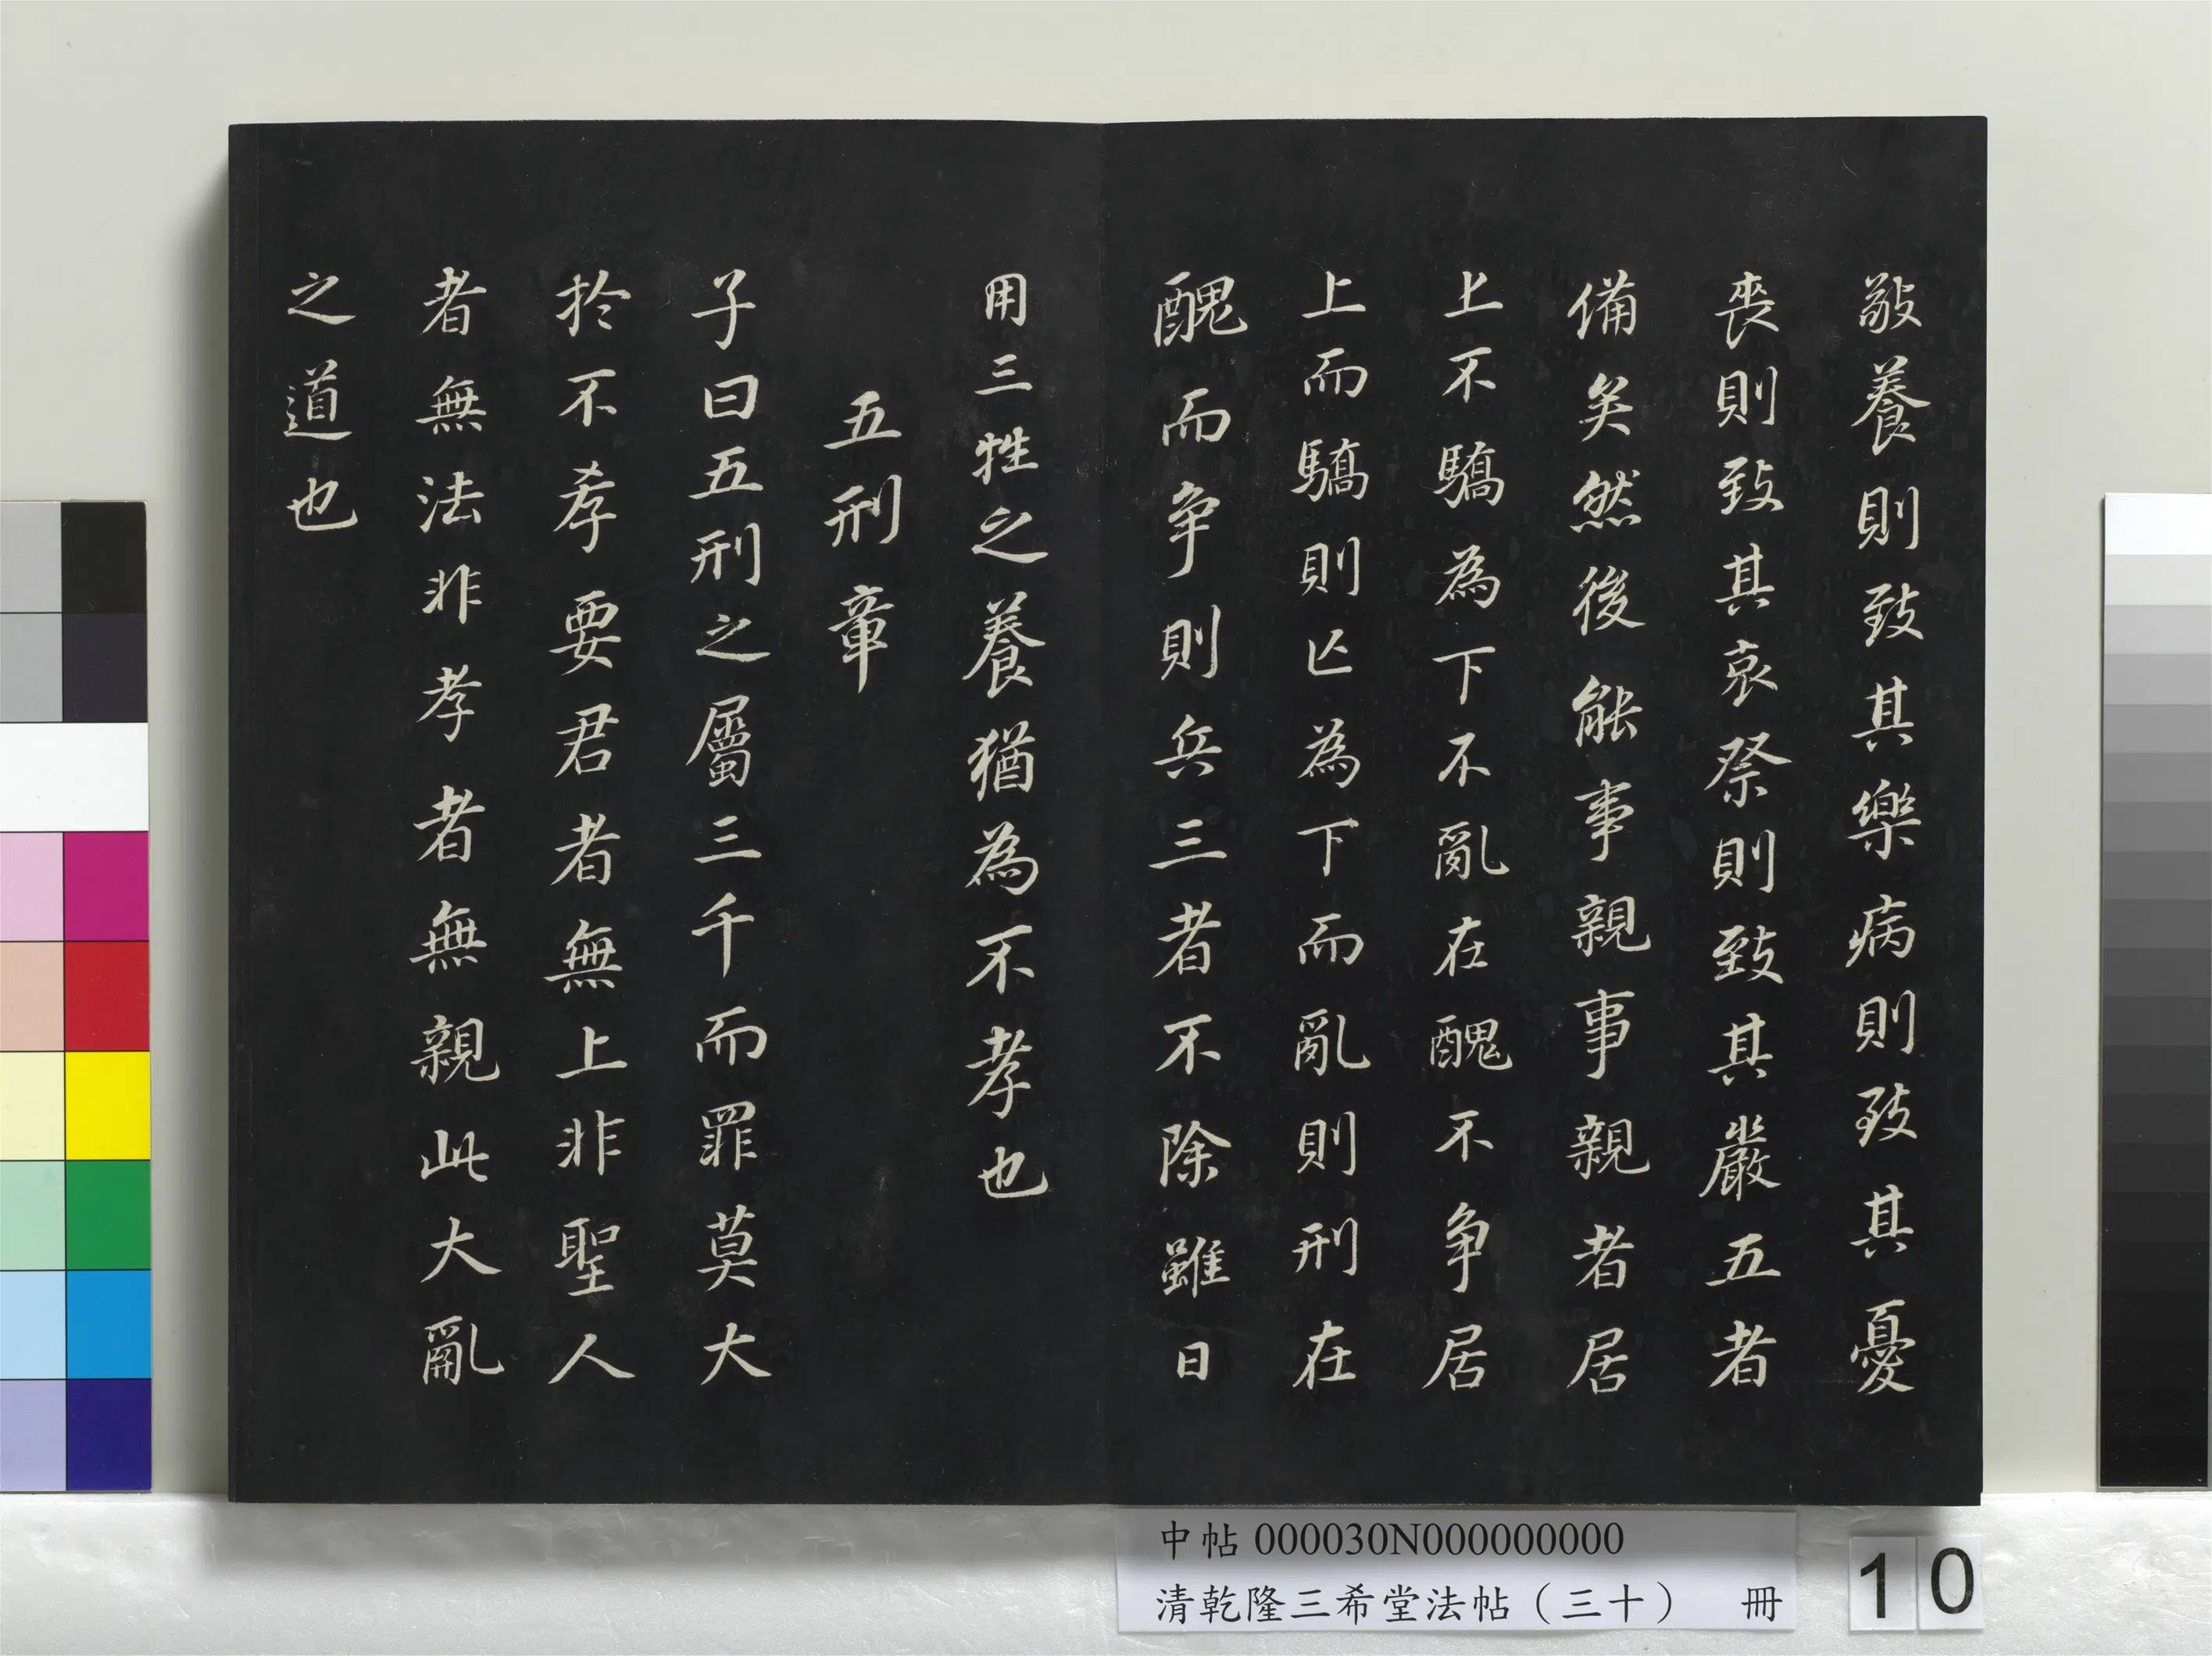 敬養則致其樂病則致其憂
喪則致其哀祭則致其嚴五者
備矣然後能事親事親者居
上不驕為下不亂在醜不争居
上而驕則亾為下而亂則刑在
醜而争則兵三者不除雖日
用三牲之養猶為不孝也
五刑章
子曰五刑之屬三千而罪莫大
於不孝要君者無上非聖人
者無法非孝者無親此大亂
之道也
中帖 000030N000000000
清乾隆三希堂法帖（三十） 冊
10